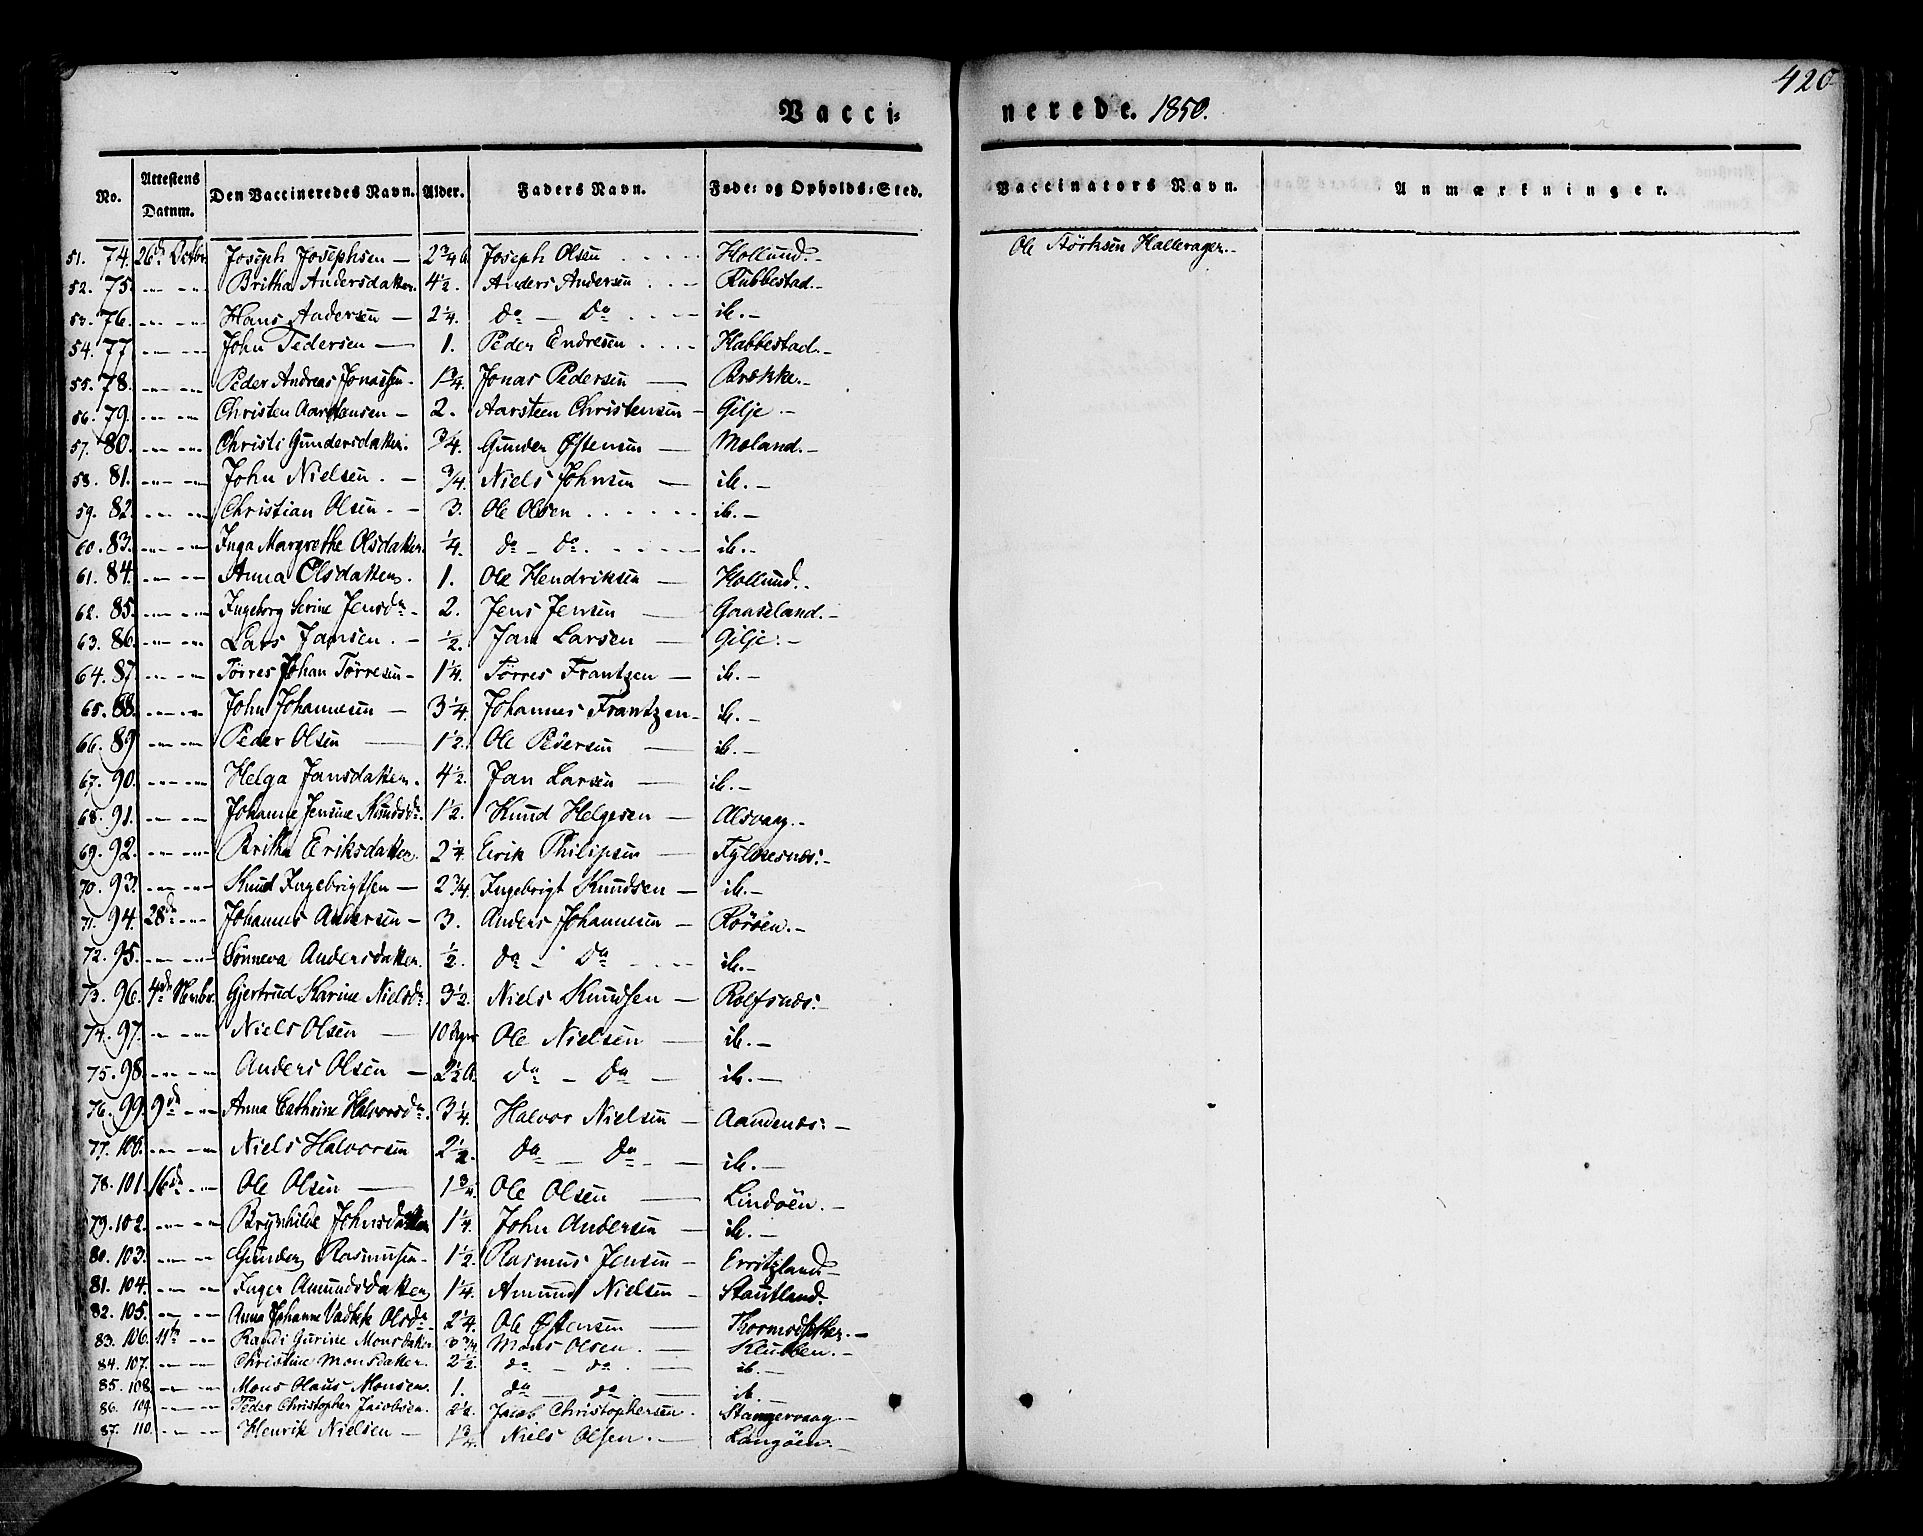 420
Vacci- nerede. 1850.
No. Attestens Datum. Den Vaccineredes Navn. Alder. Faders Navn. Føde- og Opholds-Sted. Vaccinators Navn. Anmærkninger.
51. 74. 26de Octbr. Joseph Josephsen — 2 3/4 Joseph Olsen Hollund. Ole Størksen Hallerager.
52. 75. Britha Andersdatter. 4 1/2. Anders Andersen Rubbestad.
53. 76. Hans Andersen — 2 1/4. do — do ib.
54. 77. John Pedersen — 1. Peder Endresen Habbestad.
55. 78. Peder Andreas Jonassen. 1 3/4. Jonas Pedersen — Brække.
56. 79. Christen Aarstensen — 2. Aarsteen Christensen — Gilje.
57. 80. Christi Gundersdatter. 3/4. Gunder Østensen — Moland.
58. 81. John Nielsen. — 3/4. Niels Johnsen — ib.
59. 82. Christian Olsen. — 3. Ole Olsen ib.
60. 83. Inga Margrethe Olsdatter. 1/4. do — do. ib.
61. 84. Anna Olsdatter. 1. Ole Hendriksen — Hollund.
62. 85. Ingeborg Serine Jensda. 2. Jens Jensen — Gaaseland.
63. 86. Lars Jansen. — 1/2. Jan Larsen — Gilje.
64. 87. Tørres Johan Tørresen — 1 1/4. Tørres Frantzen — ib.
65. 88. John Johannesen — 3 1/4. Johannes Frantzen — ib.
66. 89. Peder Olsen — 1 1/2. Ole Pedersen — ib.
67. 90. Helga Jansdatter. 4 1/2. Jan Larsen — ib.
68. 91. Johanne Jensine Knudsda. 1 1/2. Knud Helgesen — Alsvaag.
69. 92. Britha Eriksdatter. 2 1/4. Erik Philipsen — Fylkesnæs.
70. 93. Knud Ingebrigtsen — 2 3/4. Ingebrigt Knudsen — ib.
71. 94. 28de Johannes Andersen — 3. Anders Johannesen — Rørøen.
72. 95. Sønneva Andersdatter. 1/2. do — do ib.
73. 96. 4de Novbr. Gjertrud Karine Nielsda. 3 1/2. Niels Knudsen — Rolfsnæs.
74. 97. Niels Olsen — 10 Ole Nielsen — ib.
75. 98. Anders Olsen — 2 1/2 do — do — ib.
76. 99. 9de Anna Cathrine Halvorsda. 3 1/4. Halvor Nielsen — Aadnenæs.
77. 100. Niels Halvorsen 2 1/2. do — do — ib.
78. 101. 16de Ole Olsen — 1 3/4. Ole Olsen — Lindøen.
79. 102. Brynhilde Johnsdatter 1 1/4. John Andersen — ib.
80. 103. Gunder Rasmussen — 1 1/2. Rasmus Jensen — Erritzland
81. 104. Inger Amundsdatter 1 1/4. Amund Nielsen — Stautland.
82. 105. Anna Johanne Olsda. 2 1/4. Ole Østensen —
83. 106. 11te Randi Gurine Monsdatter. 3/4 Mons Olsen. — Klubben.
84. 107. Christine Monsdatter. 2 1/2. do — do. ib.
85. 108. Mons Olaus Monsen. 1. do — do. ib.
86. 109. Peder Christopher Jacobsen. 2 1/2. Jacob Christophersen. Stangervaag
87. 110. Henrik Nielsen — 1 3/4. Niels Olsen. — Langøen.